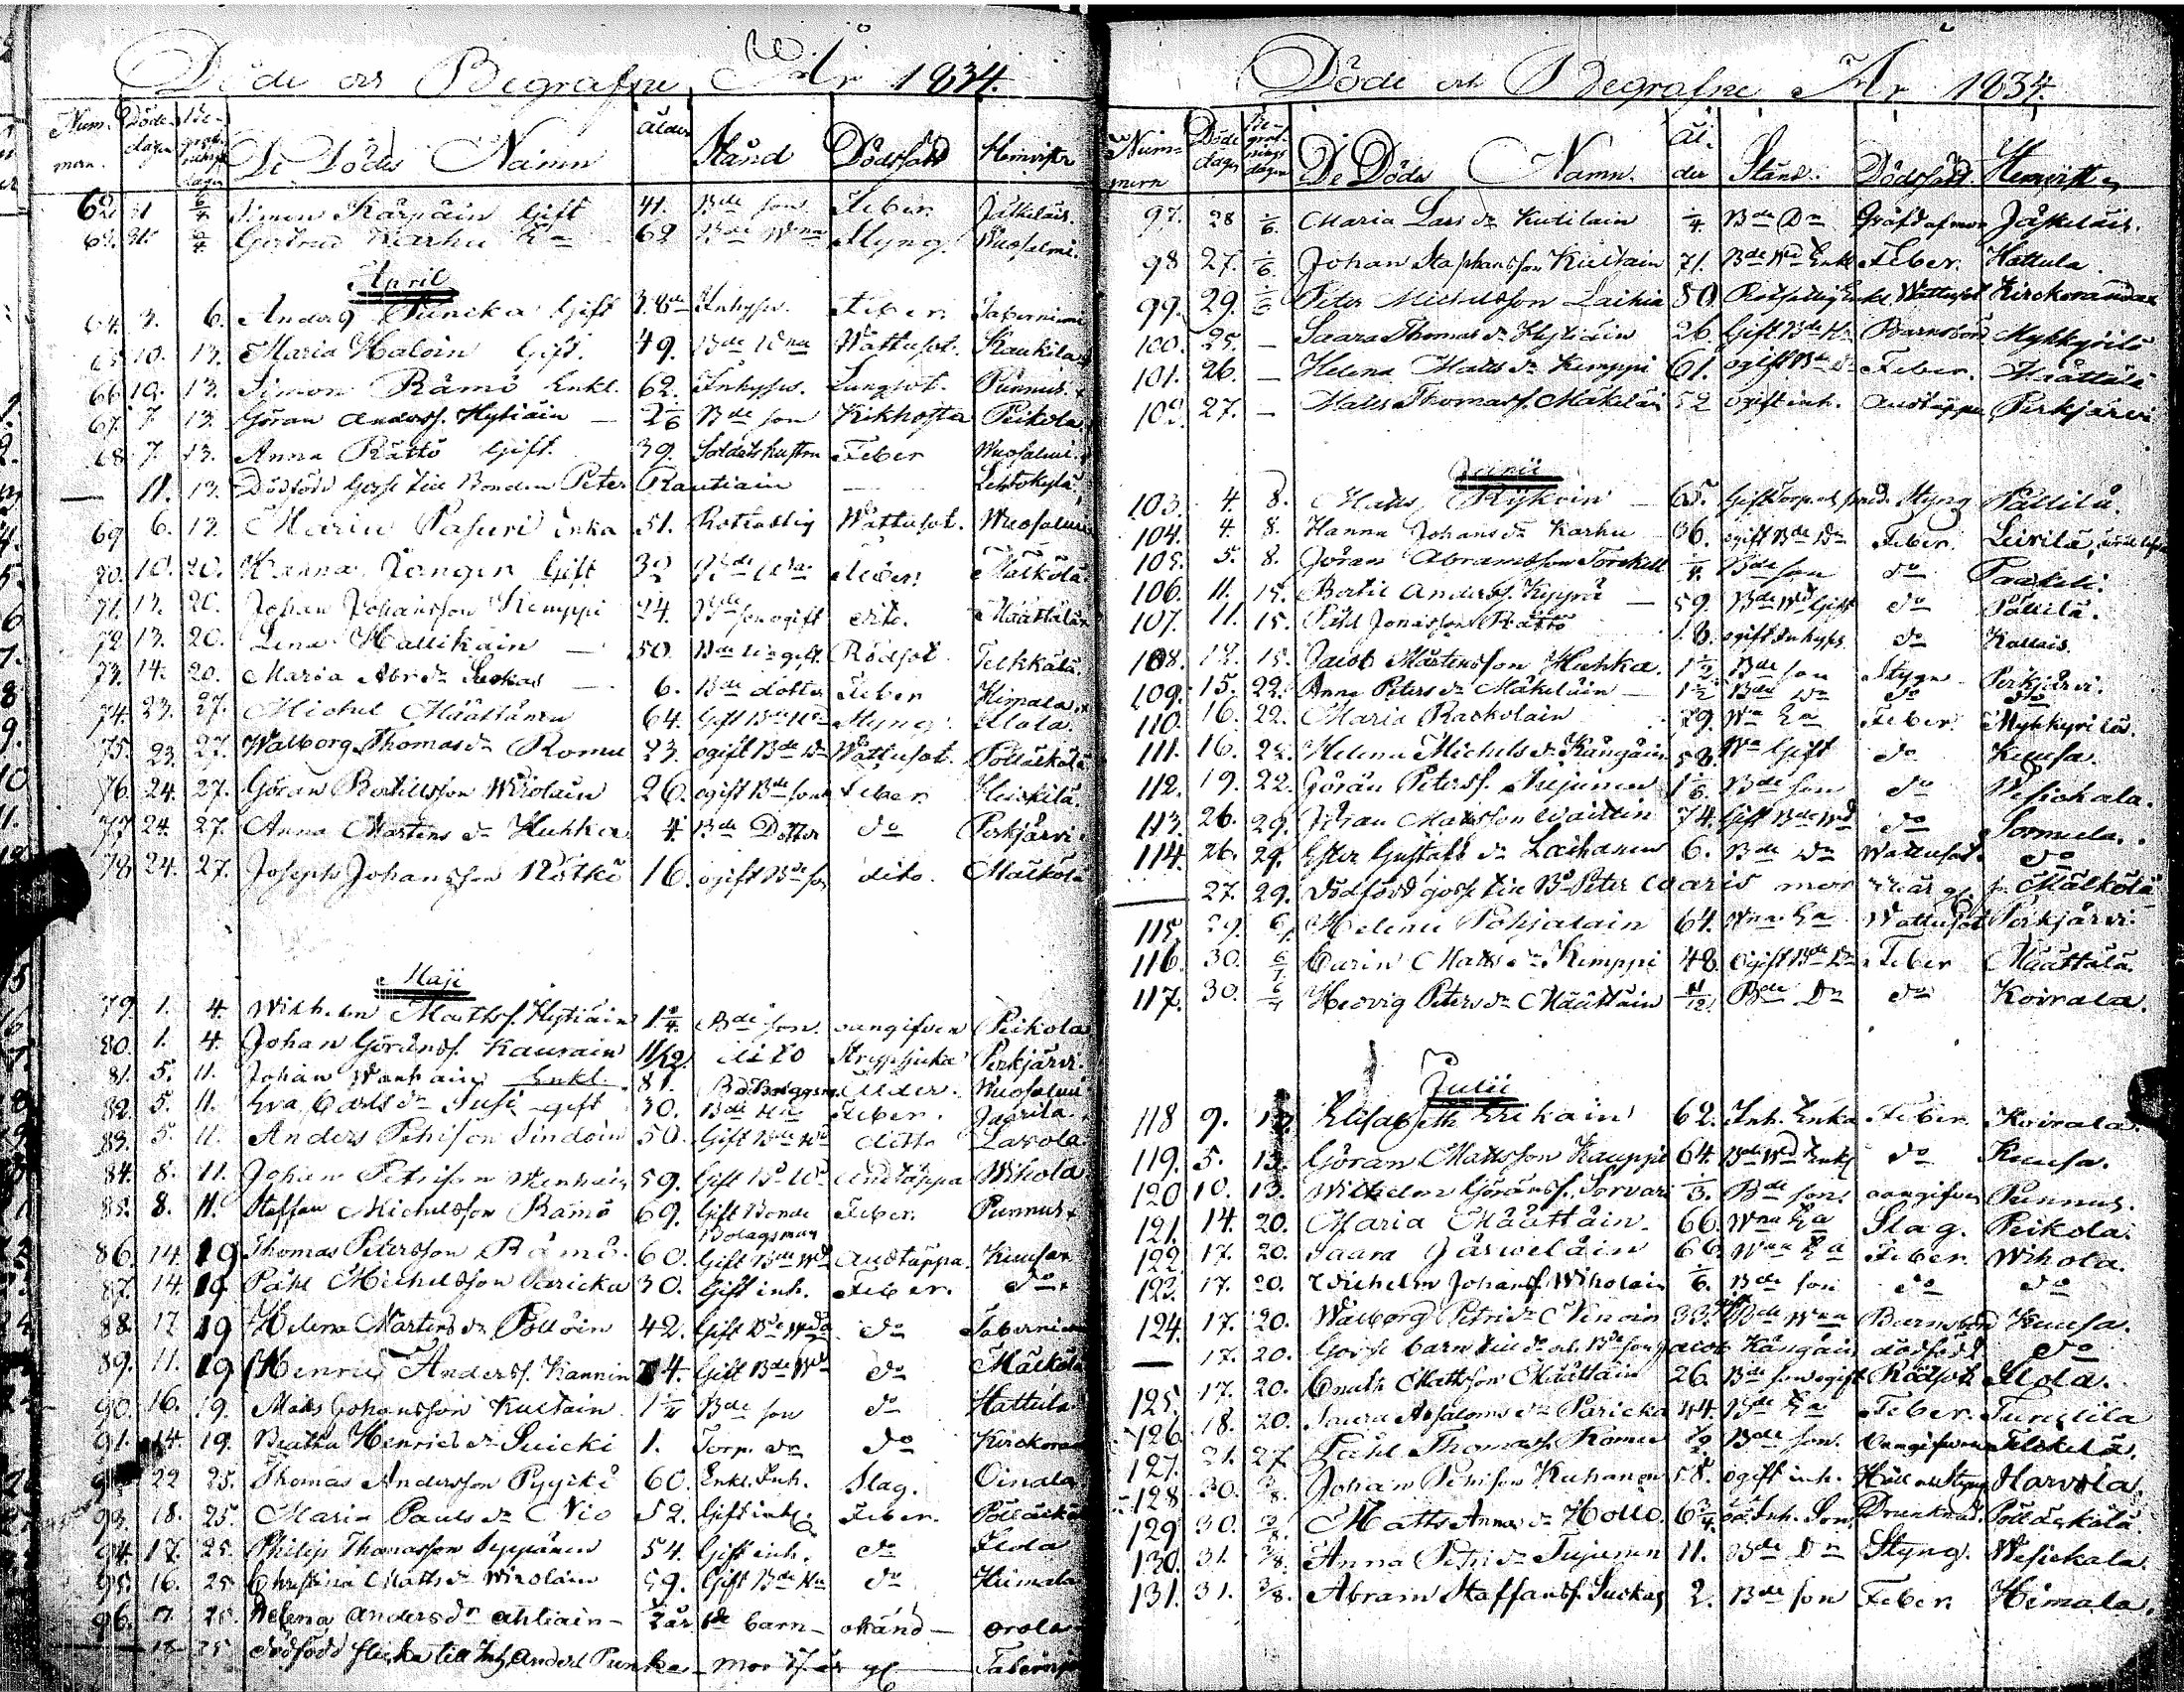 Döde och Begrafne År 1834.
Num-mern. Döde dagen Begrafnings dagen De Dödas Namn Ålder Stånd Dödssätt Hemvister
62. 31 6/4 Simon Kärpäin Gift 41. Bde son. Feber. Jäskeläis.
63. 31. 6/4 Gertrud Karhu Ea 62 Bde Wna Styng. Wuosalmi.
April
64. 3. 6. Anders Puncka Gift 38 Inhyses. Feber.
65. 10. 13. Maria Haloin Gift. 49. Bde Wna Wattusot. Kaukila
66. 10. 13. Simon Rämö Enkl. 62. Inhyses. Lungsot. Punnus.
67. 7. 13. Göran Anderss. Hytiäin — 2 1/6 Bde son Kikhosta Peikola
68. 7. 13. Anna Rättö Gift. 39. Soldatshustru Feber Wuosalmi.
— 11. 13. Dödfödd Gosse till Bonden Peter Rautiain — Lehtokylä
69 6. 13. Maria Pasuri Enka 51. Rotfattig Wattusot. Wuosalmi
70. 10. 20. Hanna Gift 32 Bde Wna Feber. Mälkölä
71. 13. 20. Johan Johansson Kemppi 24. Bde son ogift dito. Määttälä
72. 13. 20. Lena Hallikain — 50. gift. Rödsot. Telkkälä
73. 14. 20. Maria Abr. dr Suckas — 6. Bde dotter Feber Himala
74. 23. 27. Michel Määttänen 64. Gift Bde Wd Styng. Ilola.
75. 23. 27. Walborg Thomas dr Romu 23. ogift Bde Dr Wattusot. Pölläkälä
76. 24. 27. Göran Bertillsson Wirolain 26. ogift Bde son Feber Heickilä.
77 24. 27. Anna Mårtens dr Huhka 4. Bde Dotter do Perkjärvi.
78. 24. 27. Joseph Johansson Rötkö 16. ogift Bde son dito. Mälkölä
Maji
79. 1. 4. Wilhelm Mattss. Hytiäin 1 3/4. Bde son. oangifven Peikola
80. 1. 4. Johan Göranss. Kaurain 11/12. dito Strypsjuka Perkjärvi.
81. 5. 11. Johan Wanhain Enkl. 81. Bd Bolagsm. Ålder. Wuosalmi
82. 5. 11. Eva Carls dr Susi gift 30. Bde Hu Feber. Jaarila.
83. 5. 11. Anders Petrison Sindoin 50. Gift Bde Wd ditto Lavola
84. 8. 11. Johan Petrison Wenhain 59. Gift Bd Wd Andtäppa Wihola
85. 8. 11. Staffan Michelsson Rämö 69. Gift Bonde Bolagsman Feber. Punnus
86. 14. 19 Thomas Petersson Rämö. 60. Gift Bde Wd Andtäppa. Kuusa
87. 14. 19 Påhl Michelsson Paricka 30. Gift inh. Feber. do
88. 17 19 Helena Mårtens dr Pölläin 42. Gift Bde Wda do
89. 11. 19 Henric Anderss. Kannin 74. Gift Bde Wd do Mälkölä
90. 16. 19. Mats Johansson Kultain 1 1/4 Bde son do Hattula
91. 14. 19. Beatha Henrics dr Suicki 1. Torp. dr do Kirckorand
22 25. Thomas Andersson Pyyckö 60. Enkl. Inh. Slag. Oinala
93. 18. 25. Maria Pauls dr Nio 52. Gift inh. Feber. Pölläkälä
94. 17. 25. Philip Thomasson Seppänen 54. Gift inh. do Ilola
95. 16. 25 Christina Matts dr Wirolain 59. Gift Bde Hu do Himala
96. 25. Helena Anders dr Ahtiain — 2 år Bde barn — okänd — Orola
— 13 25 Dödfödd flicka till Inh. Anders Punka — mor
Döde och Begrafne År 1834.
Num-mern Döde dagen Begrafnings dagen De Döda Namn. Ålder Stånd. Dödssätt. Hemvister
97. 28 1/6. Maria Lars dr Kutilain 1/4. Bde Dr Jäskeläis.
98 27. 1/6. Johan Staphansson Kultain 71. Bde Wd Enkl. Feber. Hattula.
99. 29. 1/6 Peter Michelsson Laihia 50. Rotfattig Enkl. Wattusot Kirckoranda
100. 25. — Saara Thomas dr Hytiäin 26. Gift Bde Hu Barnsbörd Mykkyrilä
101. 26. — Helena Matts dr Kemppi 61. ogift Bde Dr Feber. Määttälä
102. 27. — Matts Thomass. Mäkeläin 52 ogift inh. Andtäppa Perkjärvi
Junii
103. 4. 8. Matts Rykoin — 65. Styng Pällilä.
104. 4. 8. Hanna Johans dr Karhu 36. ogift Bde Dr Feber. Leivilä.
105. 5. 8. Jöran Abramsson Torckell 1/4. Bde son do Paakeli.
106. 11. 15. Bertil Anderss. Kyyrä — 59. Bde Wd Gift do Pällilä.
107. 11. 15. Påhl Jonasson Rättö 18. ogift Inhyses do Kallais.
108. 12. 15. Jacob Mårtensson Huhka. 1 1/2 Bde son Styng Perkjärvi
109. 15. 22. Anna Peters dr Mäkeläin — 1 1/2 Bde Dr do do
110. 16. 22. Maria Raskolain 79. Wna Ea Feber. Mykkyrilä.
111. 16. 22. Helena Michels dr Kångäin 58. Wna Gift do Kuusa.
112. 19. 22. Göran Peterss. Sujunen 1 1/6. Bde son do Wesickala.
113. 26. 29. Johan Mattsson Waittin 74. Gift Bde Wd do Sormula.
114. 26. 29. Ester Gustafs dr Laihanen 6. Bde Dr Wattusot. do
— 27. 29. Dödfödd gosse till Bd Peter mor år gl. Mälkölä
115. 29. 6/7. Helena Pohjalain 64. Wna Ea Wattusot Perkjärvi.
116. 30. 6/7 Carin Matts dr Kemppi 48. Ogift Bde Dr Feber Määttälä.
117. 30. 6/7 Hedvig Peters dr Määttäin 11/12. Bde Dr do Koirala.
Julii
118 9. 13. Elisabeth Erikain 62. Inh. Enka Feber. Koirala.
119. 5. 13. Göran Mattsson Kauppi 64. Bde Wd Enkl do Kuusa.
120 10. 13. Wilhelm Göranss. Sorvari 1/3. Bde son oangifven Punnus.
121. 14. 20. Maria Määttäin. 66. Wna Ea Slag. Peikola.
122. 17. 20. Saara Järweläin 66. Wna Ea Feber. Wihola.
123. 17. 20. Wilhelm Johanss. Wiholain 1/6. Bde son do do
124. 17. 20. Walborg Petri dr Nenoin 33. Bde Wna Barnsbörd Kuusa.
— 17. 20. Gosse barn till do och Bde son Jacob Kångäin dödfödd do
125. 17. 20. Mattsson Määttäin 26. Bde son ogift Rödsot Ilola.
126. 18. 20. Saara Absaloms dr Paricka 44. Bde Ea Feber.
127. 21. 27 Påhl Thomass. Romu Bde son. Oangifven
128 30. 3/8. Johan Petrison Kuhanen 58. ogift inh. Håll och Styng Harvola.
129 30. 3/8. Matts Annas dr Hollo. 6 3/4. oä. Inh. Son. Drunknad. Pölläkälä
130. 31. 3/8. Anna Petri dr Sujunen 11. Bde Dr Styng. Wesickala.
131. 31. 3/8. Abram Staffanss. Suckas 2. Bde son Feber. Himala.